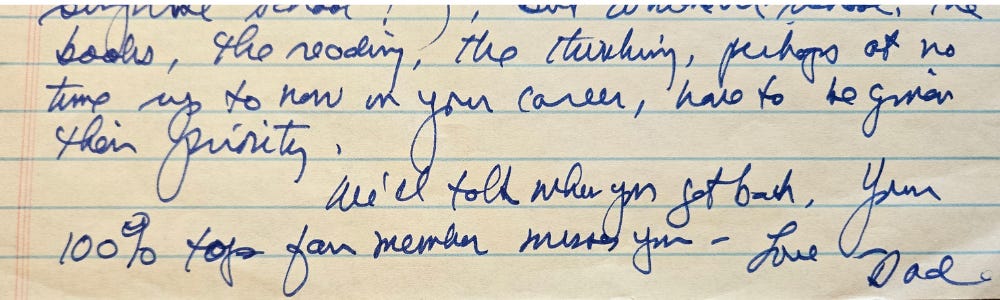 books, the reading, the thinking, perhaps at no
time up to now in your career, have to be given
their priority.
We'll talk when you get back. Your
100% top fan member misses you – Love
Dad